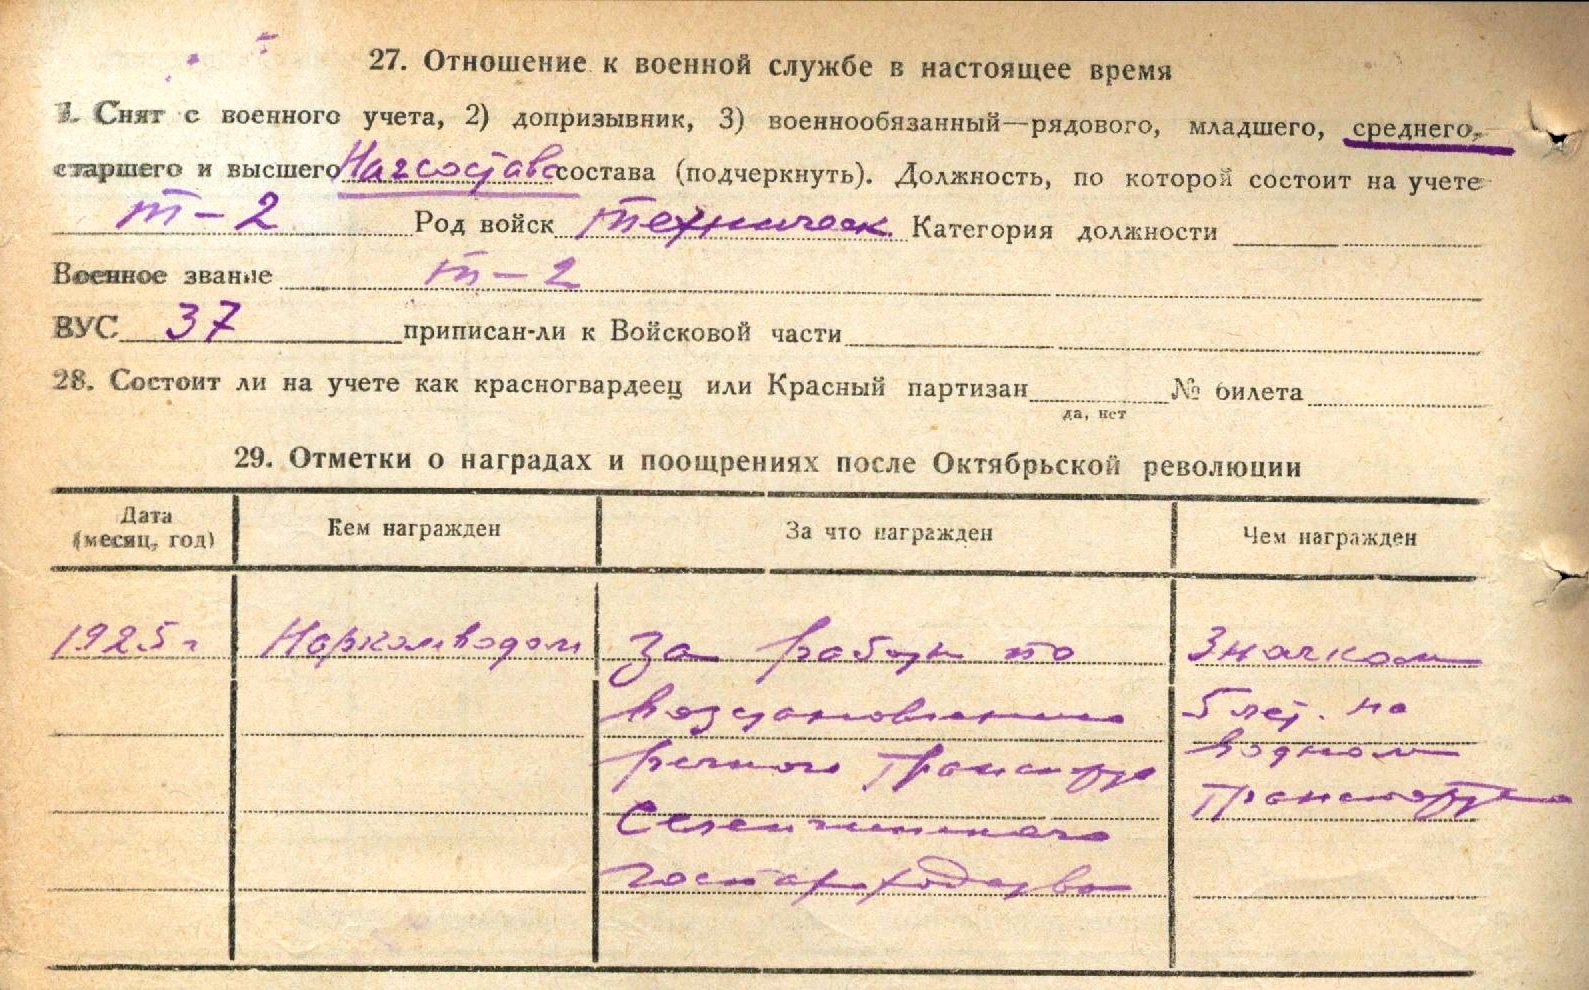 27. Отношение к военной службе в настоящее время
1. Снят с военного учета, 2) допризывник, 3) военнообязанный—рядового, младшего, среднего,
старшего и высшего Начсостава состава (подчеркнуть). Должность, по которой состоит на учете
т-2 Род войск техническ. Категория должности
Военное звание т-2
ВУС 37 приписан-ли к Войсковой части
28. Состоит ли на учете как красногвардеец или Красный партизан № билета
да, нет
29. Отметки о наградах и поощрениях после Октябрьской революции
Дата (месяц, год) Кем награжден За что награжден Чем награжден
1925 г Наркомводом За работу по Значком
5 лет. на
возстановлению
водном
речного транспорта
транспорте
Селенгинского
госпароходства